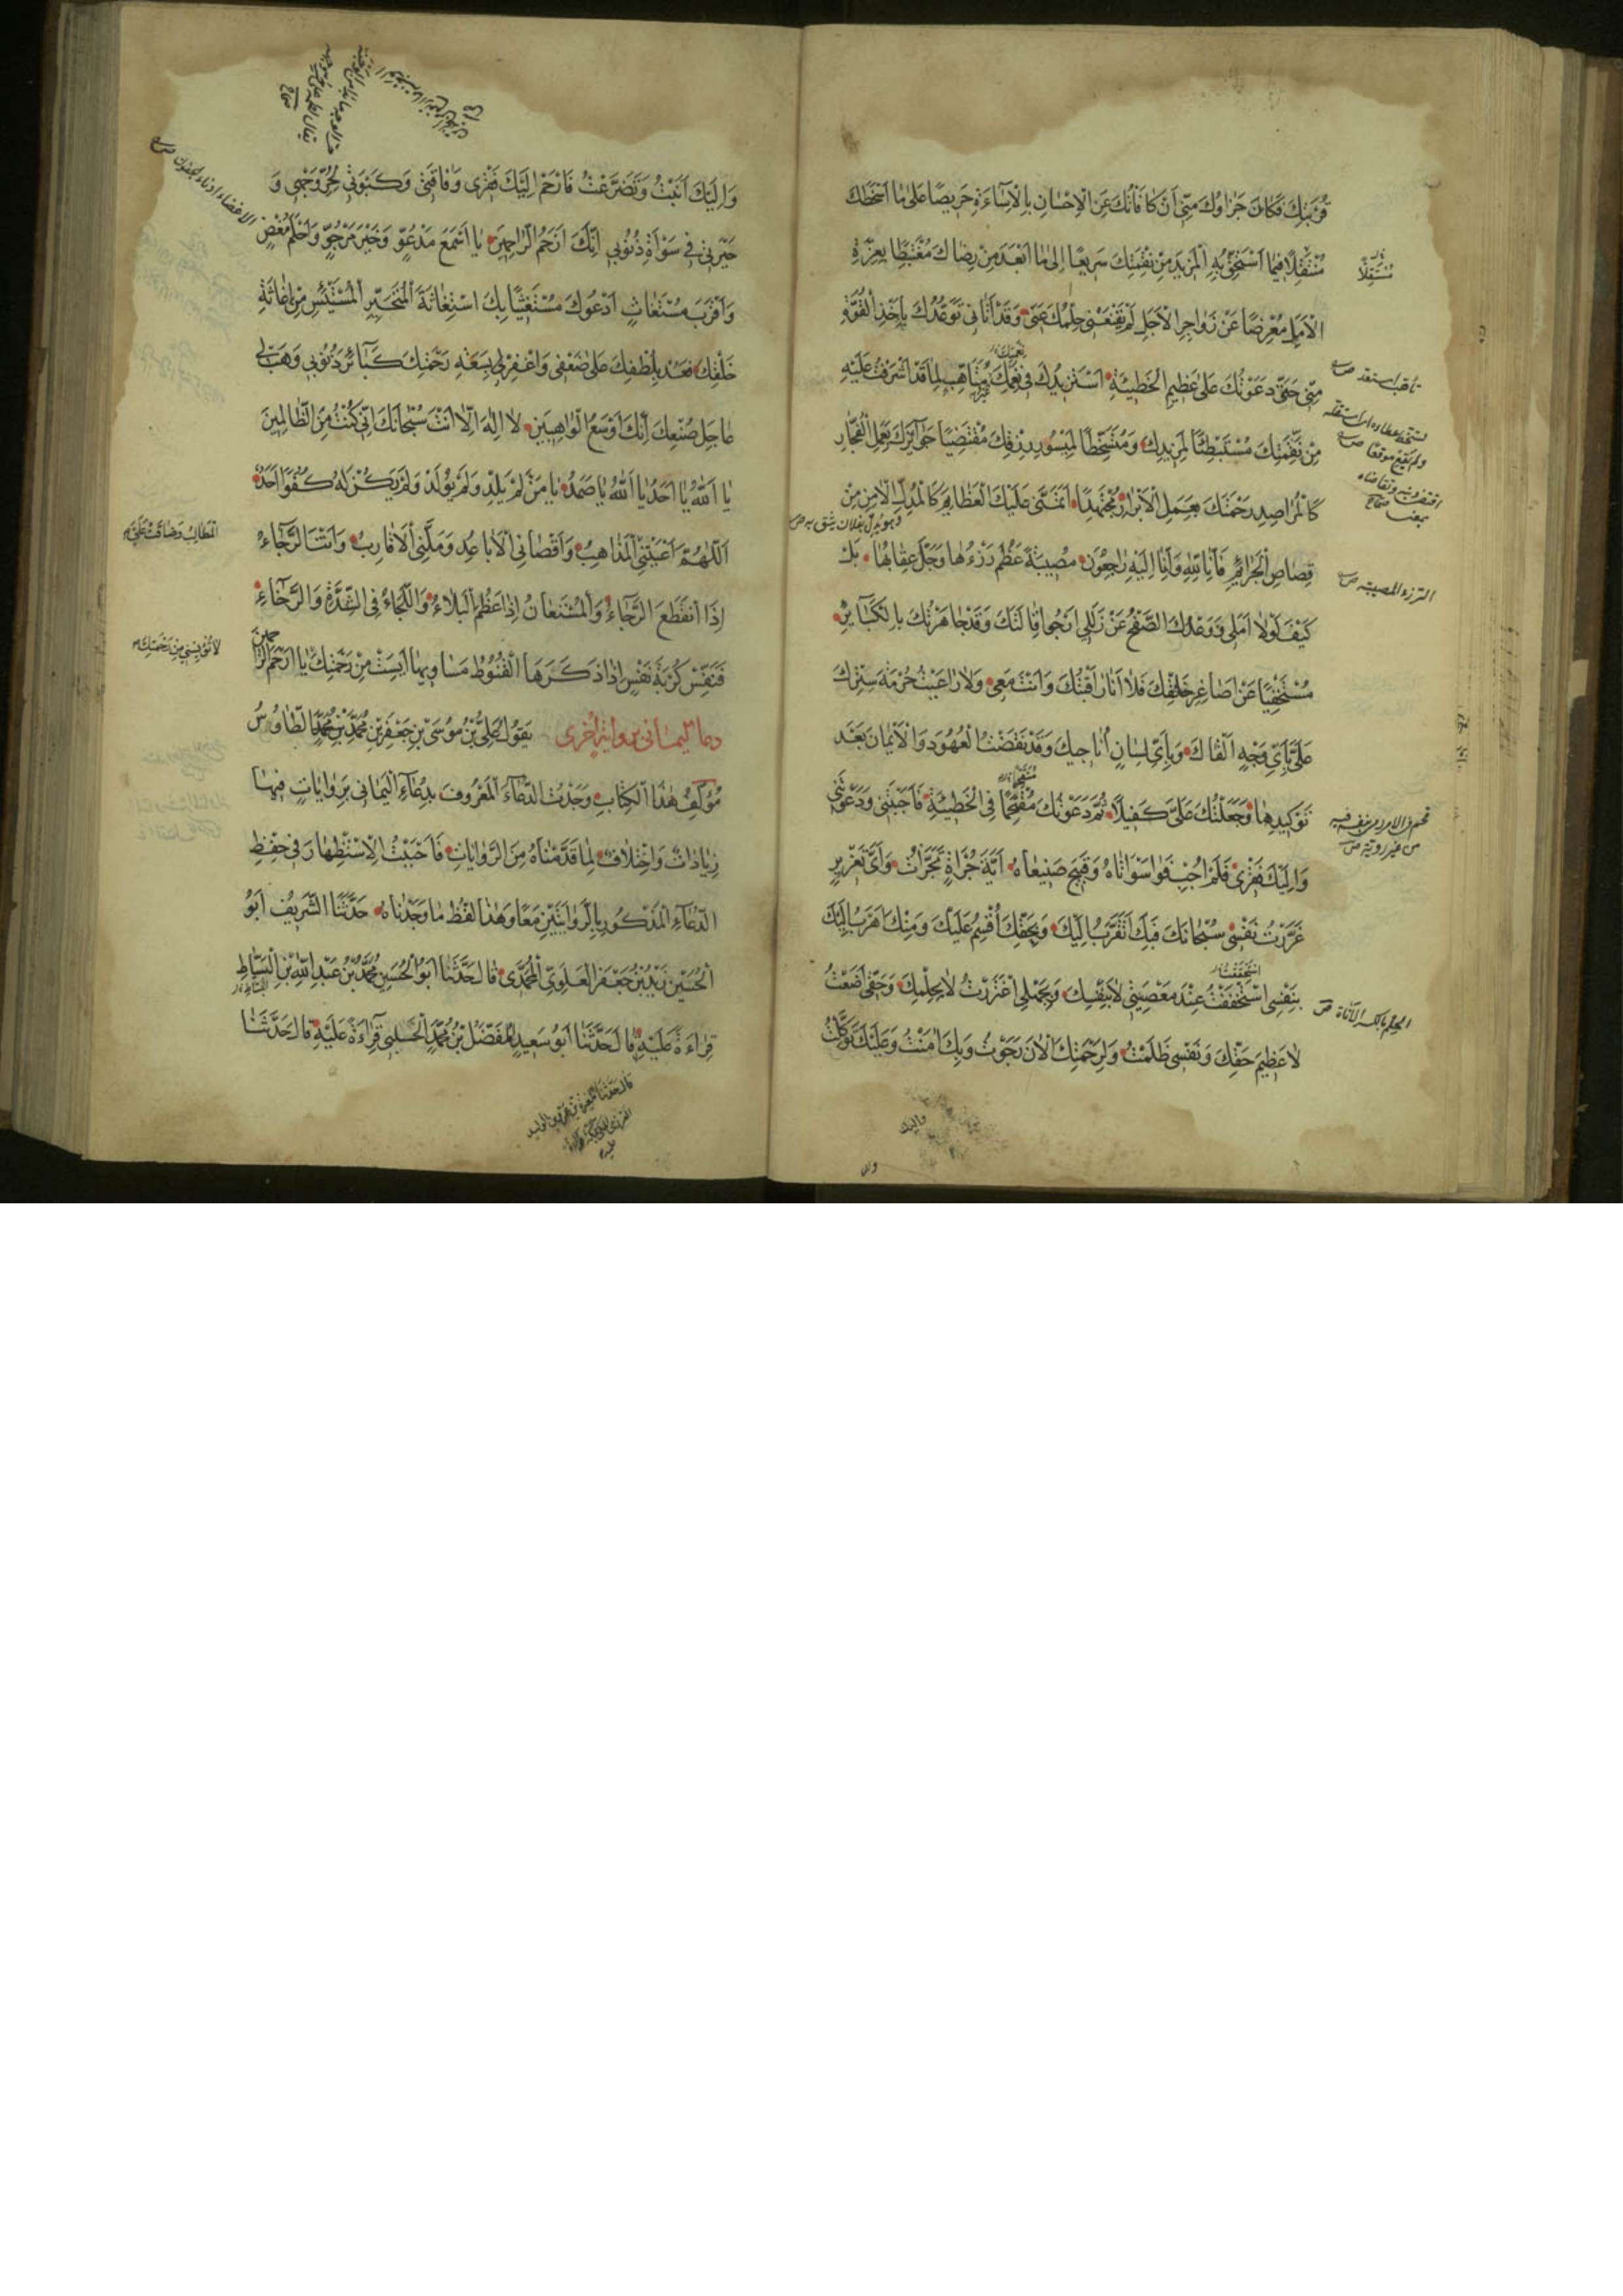 قُرْبِكَ فَكَانَ جَزَاؤُكَ مِنِّي أَنْ كَافَأْتُكَ عَنِ الْإِحْسَانِ بِالْإِسَاءَةِ حَرِيصًا عَلَى مَا أَسْخَطَكَ
مُنْتَقِلًا فِيمَا أَسْتَحِقُّ بِهِ الْمَزِيدَ مِنْ نِقْمَتِكَ سَرِيعًا إِلَى مَا أَبْعَدَ مِنْ رِضَاكَ مُغْتَبِطًا بِعِزَّةِ
الْأَمَلِ مُعْرِضًا عَنْ زَوَاجِرِ الْأَجَلِ لَمْ يُقْنِعْنِي حِلْمُكَ عَنِّي وَقَدْ أَتَانِي تَوَعُّدُكَ بِأَخْذِ الْقُوَّةِ
مِنِّي حَتَّى دَعَوْتُكَ عَلَى عَظِيمِ الْخَطِيئَةِ أَسْتَزِيدُكَ فِي نِعَمِكَ غَيْرَ مُتَأَهِّبٍ لِمَا قَدْ أَشْرَفْتُ عَلَيْهِ
مِنْ نِقْمَتِكَ مُسْتَبْطِئًا لِمَزِيدِكَ وَمُتَسَخِّطًا لِمَيْسُورِ رِزْقِكَ مُقْتَضِيًا جَوَائِزَكَ بِعَمَلِ الْفُجَّارِ
كَالْمُرَاصِدِ رَحْمَتَكَ بِعَمَلِ الْأَبْرَارِ مُجْتَهِدًا أَتَمَنَّى عَلَيْكَ الْعَظَائِمَ كَالْمُدِلِّ الْآمِنِ مِنْ
قِصَاصِ الْجَرَائِمِ فَإِنَّا لِلَّهِ وَإِنَّا إِلَيْهِ رَاجِعُونَ مُصِيبَةٌ عَظُمَ رُزْءُهَا وَجَلَّ عِقَابُهَا بَلْ
كَيْفَ لَوْلَا أَمَلِي وَوَعْدُكَ الصَّفْحَ عَنْ زَلَلِي أَرْجُو إِقَالَتَكَ وَقَدْ جَاهَرْتُكَ بِالْكَبَائِرِ
مُسْتَخْفِيًا عَنْ أَصَاغِرِ خَلْقِكَ فَلَا أَنَا رَاقَبْتُكَ وَأَنْتَ مَعِي وَلَا رَاعَيْتُ حُرْمَةَ سِتْرِكَ
عَلَيَّ بِأَيِّ وَجْهٍ أَلْقَاكَ وَبِأَيِّ لِسَانٍ أُنَاجِيكَ وَقَدْ نَقَضْتُ الْعُهُودَ وَالْأَيْمَانَ بَعْدَ
تَوْكِيدِهَا وَجَعَلْتُكَ عَلَيَّ كَفِيلًا ثُمَّ دَعَوْتُكَ مُقْتَحِمًا فِي الْخَطِيئَةِ فَأَجَبْتَنِي وَدَعَوْتَنِي
وَإِلَيْكَ فَقْرِي فَلَمْ أُجِبْ فَوَا سَوْأَتَاهُ وَقَبِيحَ صَنِيعَاهُ أَيَّةَ جُرْأَةٍ تَجَرَّأْتُ وَأَيَّ تَغْرِيرٍ
غَرَّرْتُ نَفْسِي سُبْحَانَكَ فَبِكَ أَتَقَرَّبُ إِلَيْكَ وَبِحَقِّكَ أُقْسِمُ عَلَيْكَ وَمِنْكَ أَهْرُبُ إِلَيْكَ
بِنَفْسِي اسْتَخْفَفْتُ عِنْدَ مَعْصِيَتِي لَا بِنَفْسِكَ وَبِجَهْلِي اغْتَرَرْتُ لَا بِحِلْمِكَ وَحَقِّي أَضَعْتُ
لَا عَظِيمَ حَقِّكَ وَنَفْسِي ظَلَمْتُ وَلِرَحْمَتِكَ الْآنَ رَجَوْتُ وَبِكَ آمَنْتُ وَعَلَيْكَ تَوَكَّلْتُ
الرزء المصيبة
الحلم بالكسر الأناة
وإليك
وَإِلَيْكَ أَنَبْتُ وَتَضَرَّعْتُ فَارْحَمْ إِلَيْكَ فَقْرِي وَفَاقَتِي وَكَبْوَتِي لِحُرِّ وَجْهِي وَ
حَيْرَتِي فِي سَوْأَةِ ذُنُوبِي إِنَّكَ أَرْحَمُ الرَّاحِمِينَ يَا أَسْمَعَ مَدْعُوٍّ وَخَيْرَ مَرْجُوٍّ وَأَحْلَمَ مُغْضٍ
وَأَقْرَبَ مُسْتَغَاثٍ أَدْعُوكَ مُسْتَغِيثًا بِكَ اسْتِغَاثَةَ الْمُتَحَيِّرِ الْمُسْتَيْئِسِ مِنْ إِغَاثَةِ
خَلْقِكَ فَعُدْ بِلُطْفِكَ عَلَى ضَعْفِي وَاغْفِرْ لِي بِسَعَةِ رَحْمَتِكَ كَبَائِرَ ذُنُوبِي وَهَبْ لِي
عَاجِلَ صُنْعِكَ إِنَّكَ أَوْسَعُ الْوَاهِبِينَ لَا إِلَهَ إِلَّا أَنْتَ سُبْحَانَكَ إِنِّي كُنْتُ مِنَ الظَّالِمِينَ
يَا اَللَّهُ يَا أَحَدُ يَا اَللَّهُ يَا صَمَدُ يَا مَنْ لَمْ يَلِدْ وَلَمْ يُولَدْ وَلَمْ يَكُنْ لَهُ كُفُوًا أَحَدٌ
اَللَّهُمَّ أَعْيَتْنِي الْمَذَاهِبُ وَأَقْصَانِي الْأَبَاعِدُ وَمَلَّنِي الْأَقَارِبُ وَأَنْتَ الرَّجَاءُ
إِذَا انْقَطَعَ الرَّجَاءُ وَالْمُسْتَعَانُ إِذَا عَظُمَ الْبَلَاءُ وَاللَّجَاءُ فِي الشِّدَّةِ وَالرَّخَاءِ
فَنَفِّسْ كُرْبَةَ نَفْسٍ إِذَا ذَكَّرَهَا الْقُنُوطُ مَسَاوِيهَا أَيِسَتْ مِنْ رَحْمَتِكَ يَا أَرْحَمَ الرَّاحِمِينَ
دعاء اليماني برواية أخرى يَقُولُ عَلِيُّ بْنُ مُوسَى بْنِ جَعْفَرِ بْنِ مُحَمَّدِ بْنِ مُحَمَّدٍ الطَّاوُسُ
مُؤَلِّفُ هَذَا الْكِتَابِ وَجَدْتُ الدُّعَاءَ الْمَعْرُوفَ بِدُعَاءِ الْيَمَانِي بِرِوَايَاتٍ فِيهَا
زِيَادَاتٌ وَاخْتِلَافٌ لِمَا قَدَّمْنَاهُ مِنَ الرِّوَايَاتِ فَأَحْبَبْتُ الْاِسْتِظْهَارَ فِي حِفْظِ
الدُّعَاءِ الْمَذْكُورِ بِالرِّوَايَتَيْنِ مَعًا وَهَذَا لَفْظُ مَا وَجَدْنَاهُ حَدَّثَنَا الشَّرِيفُ أَبُو
الْحُسَيْنِ زَيْدُ بْنُ جَعْفَرٍ الْعَلَوِيُّ الْمُحَمَّدِي قَالَ حَدَّثَنَا أَبُو الْحُسَيْنِ مُحَمَّدُ بْنُ عَبْدِ اللَّهِ بْنِ الْبَسَّاطِ
قِرَاءَةً عَلَيْهِ قَالَ حَدَّثَنَا أَبُو سَعِيدٍ الْمُفَضَّلُ بْنُ مُحَمَّدٍ الْحُسَيْنِي قِرَاءَةً عَلَيْهِ قَالَ حَدَّثَنَا
الْمَطَالِبُ وَضَاقَتْ عَلَيَّ
لَا تُؤْيِسْنِي مِنْ رَحْمَتِكَ